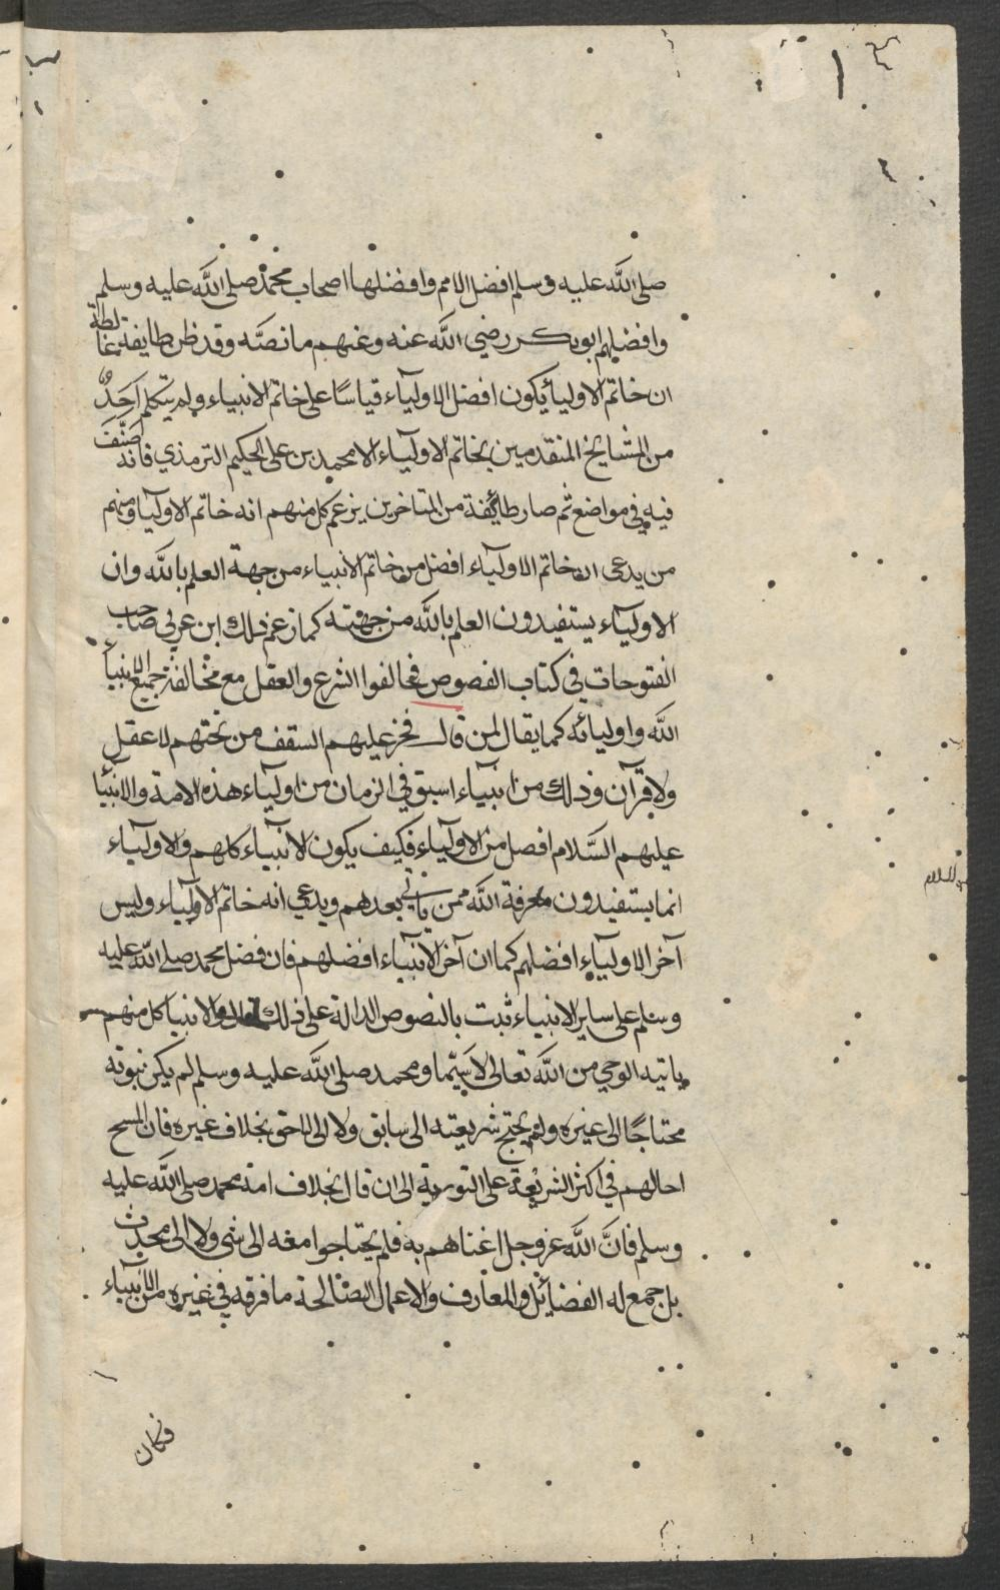 صلى الله عليه وسلم افضل الامم وافضلها اصحاب محمد صلى الله عليه وسلم
وافضلهم ابوبكر رضي الله عنه وعنهم ما نصه وقد ظن طايفة غالطة
ان خاتم الاوليأ يكون افضل الاوليآء قياسًا على خاتم الانبياء ولم يتكلم احَدٌ
من المشايخ المتقدمين بخاتم الاوليآء الا محمد بن على الحكيم الترمذي فانه صَنَّفَ
فيه في مواضع ثم صار طائفة من المتاخرين يزعم كل منهم انه خاتم الاوليآ ومنهم
من يدعى ان خاتم الاوليآء افضل من خاتم الانبياء من جهة العلم بالله وان
الاوليآء يستفيدون العلم بالله من جهته كما زعم ذلك ابن عربي صاحب
الفتوحات في كتاب الفصوص فخالفوا الشرع والعقل مع مخالفة جميع الانبيأ
الله واوليائه كما يقال لمن قال فخر عليهم السقف من تحتهم لا عقل
ولا قرآن وذلك من انبيآء اسبق في الزمان من اوليآء هذه الامة والانبيآ
عيلهم السَّلام افصل من الاوليآء فكيف يكون الانبيآء كلهم والاوليآء
انما يستفيدون معرفة الله ممن ياتي بعدهم ويدعي انه خاتم الاوليآء وليس
آخر الاوليآء افضلهم كما ان آخر الانبيآء افضلهم فان فضل محمد صلى الله عليه
وسلم على ساير الانبياء ثبت بالنصوص الدالة على ذلك والانبيا كل منهم
ياتيه الوحي من الله تعالى لاسيّما ومحمد صلى الله عليه وسلم لم يكن نبوته
محتاجًا الى غيره ولم يحتج شريعته الى سابق ولا الى لاحق بخلاف غيره فان المسح
احالهم في اكثر الشريعة على التورية الى ان قال بخلاف امة محمد صلى الله عليه
وسلم فانَّ الله عز وجل اغناهم به فلم يحتاجوا معه الى شى ولا الى محدث
بل جمع له الفضائل والمعارف والاعمال الصالحة ما فرقه في غيره من الانبيآء
فكان